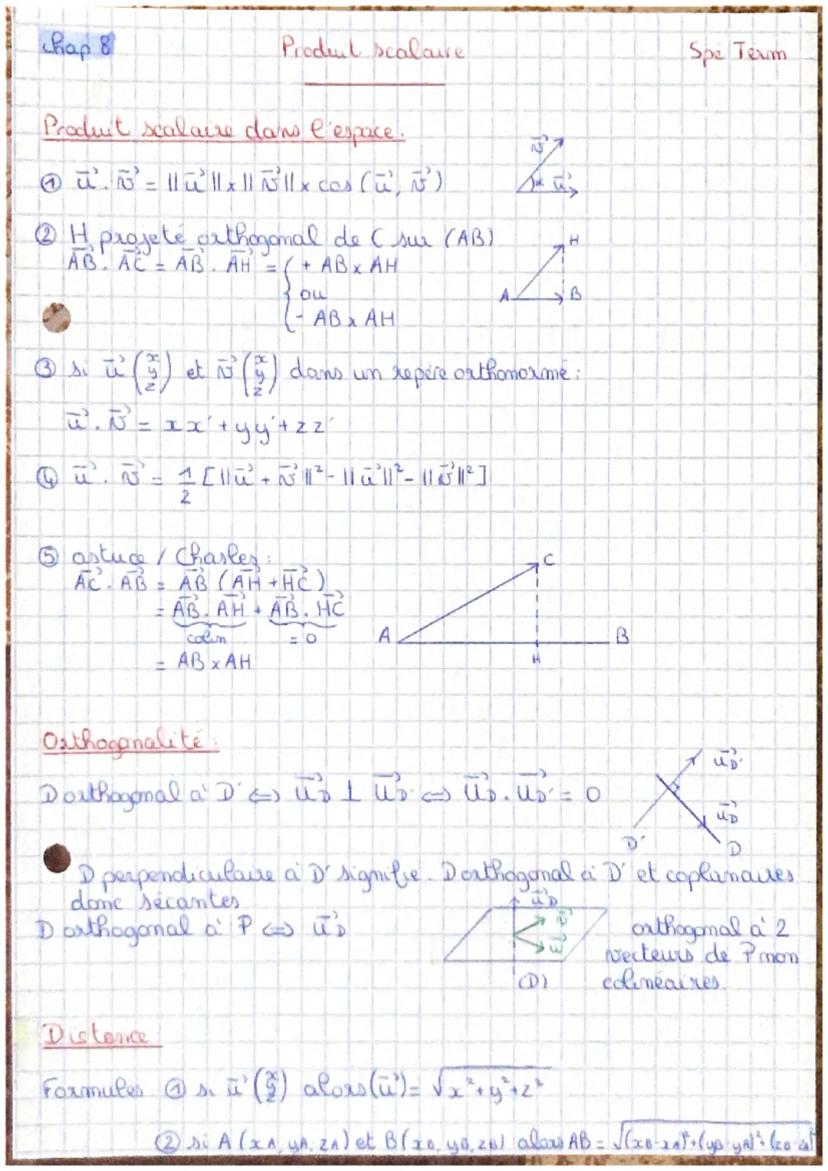 Chap 8 Produit scalaire Spé Term
Produit scalaire dans l'espace :
① u⃗ . v⃗ = ||u⃗|| x ||v⃗|| x cos (u⃗, v⃗)
v⃗
α u⃗
② H projeté orthogonal de C sur (AB)
AB⃗ . AC⃗ = AB⃗ . AH⃗ = { + AB x AH
ou
- AB x AH
H
A B
③ si u⃗ (x y z) et v⃗ (x y z) dans un repère orthonormé :
u⃗ . v⃗ = xx' + yy' + zz'
④ u⃗ . v⃗ = 1/2 [||u⃗ + v⃗||² - ||u⃗||² - ||v⃗||²]
⑤ astuce / Chasles :
AC⃗ . AB⃗ = AB⃗ (AH⃗ + HC⃗)
= AB⃗ . AH⃗ + AB⃗ . HC⃗
colin = 0
= AB x AH
C
A B
H
Orthogonalité :
D orthogonal à D' ⇔ u⃗D ⊥ u⃗D' ⇔ u⃗D . u⃗D' = 0
u⃗D'
u⃗D
D' D
D perpendiculaire à D' signifie . D orthogonal à D' et coplanaires
donc sécantes
D orthogonal à P ⇔ u⃗D orthogonal à 2
vecteurs de P non
colinéaires
u⃗D
v⃗
w⃗
(D)
Distance
Formules ① si u⃗ (x y z) alors (u⃗) = √x² + y² + z²
② si A (xA, yA, zA) et B (xB, yB, zB) alors AB = √(xB-xA)² + (yB-yA)² + (zB-zA)²